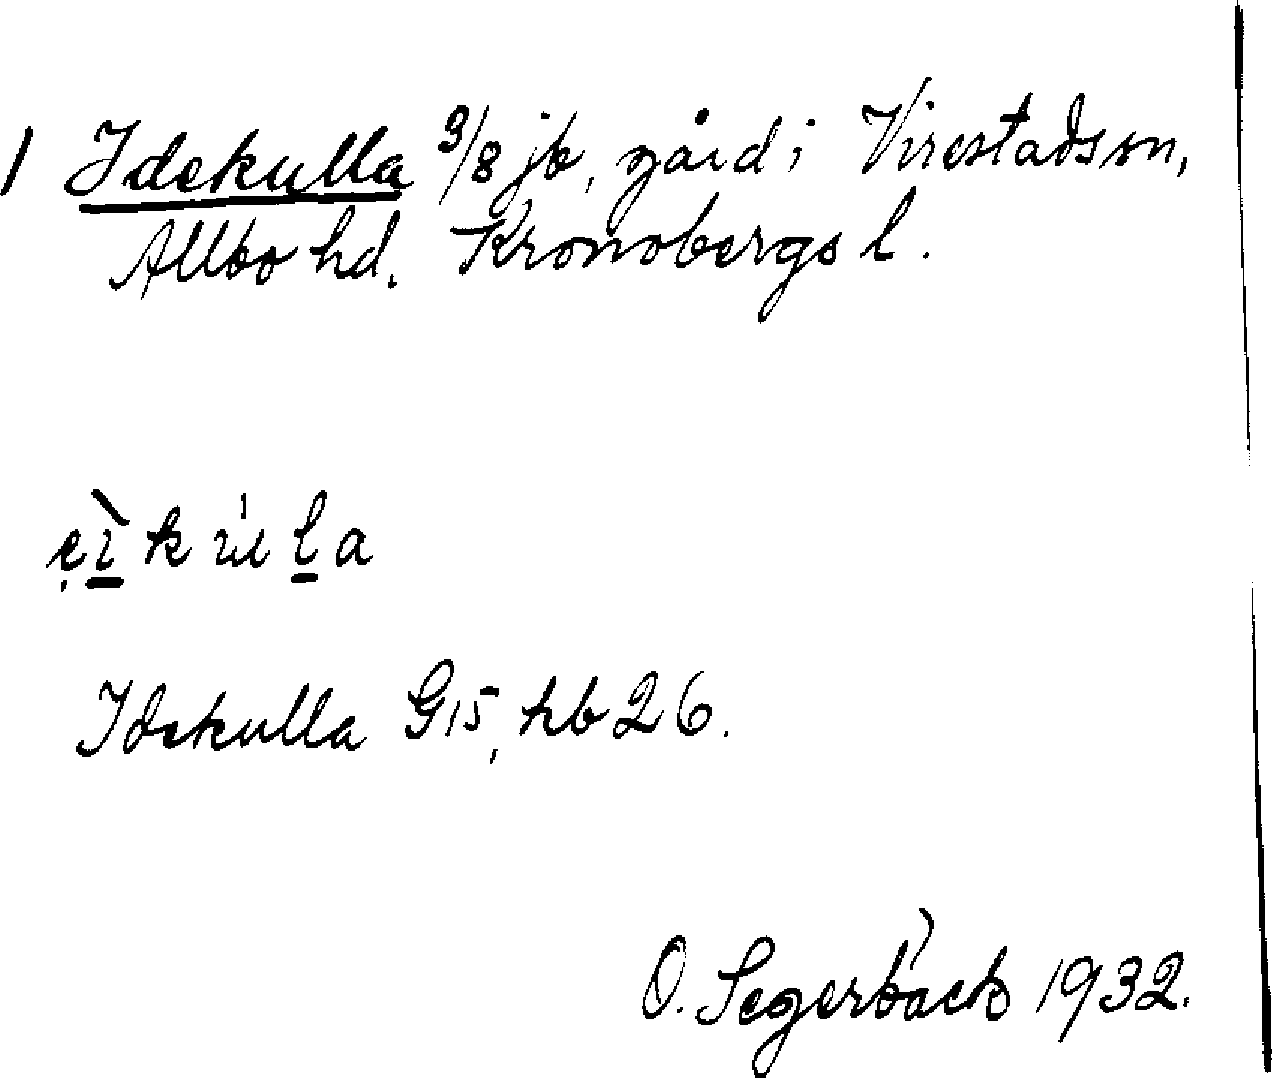 1 Idekulla 3/8 jb, gård i Virestads sn,
Allbo hd. Kronobergs l.
ẹì̱ k ú l̲ a
Idekulla G15, kb 26.
O. Segerbäck 1932.